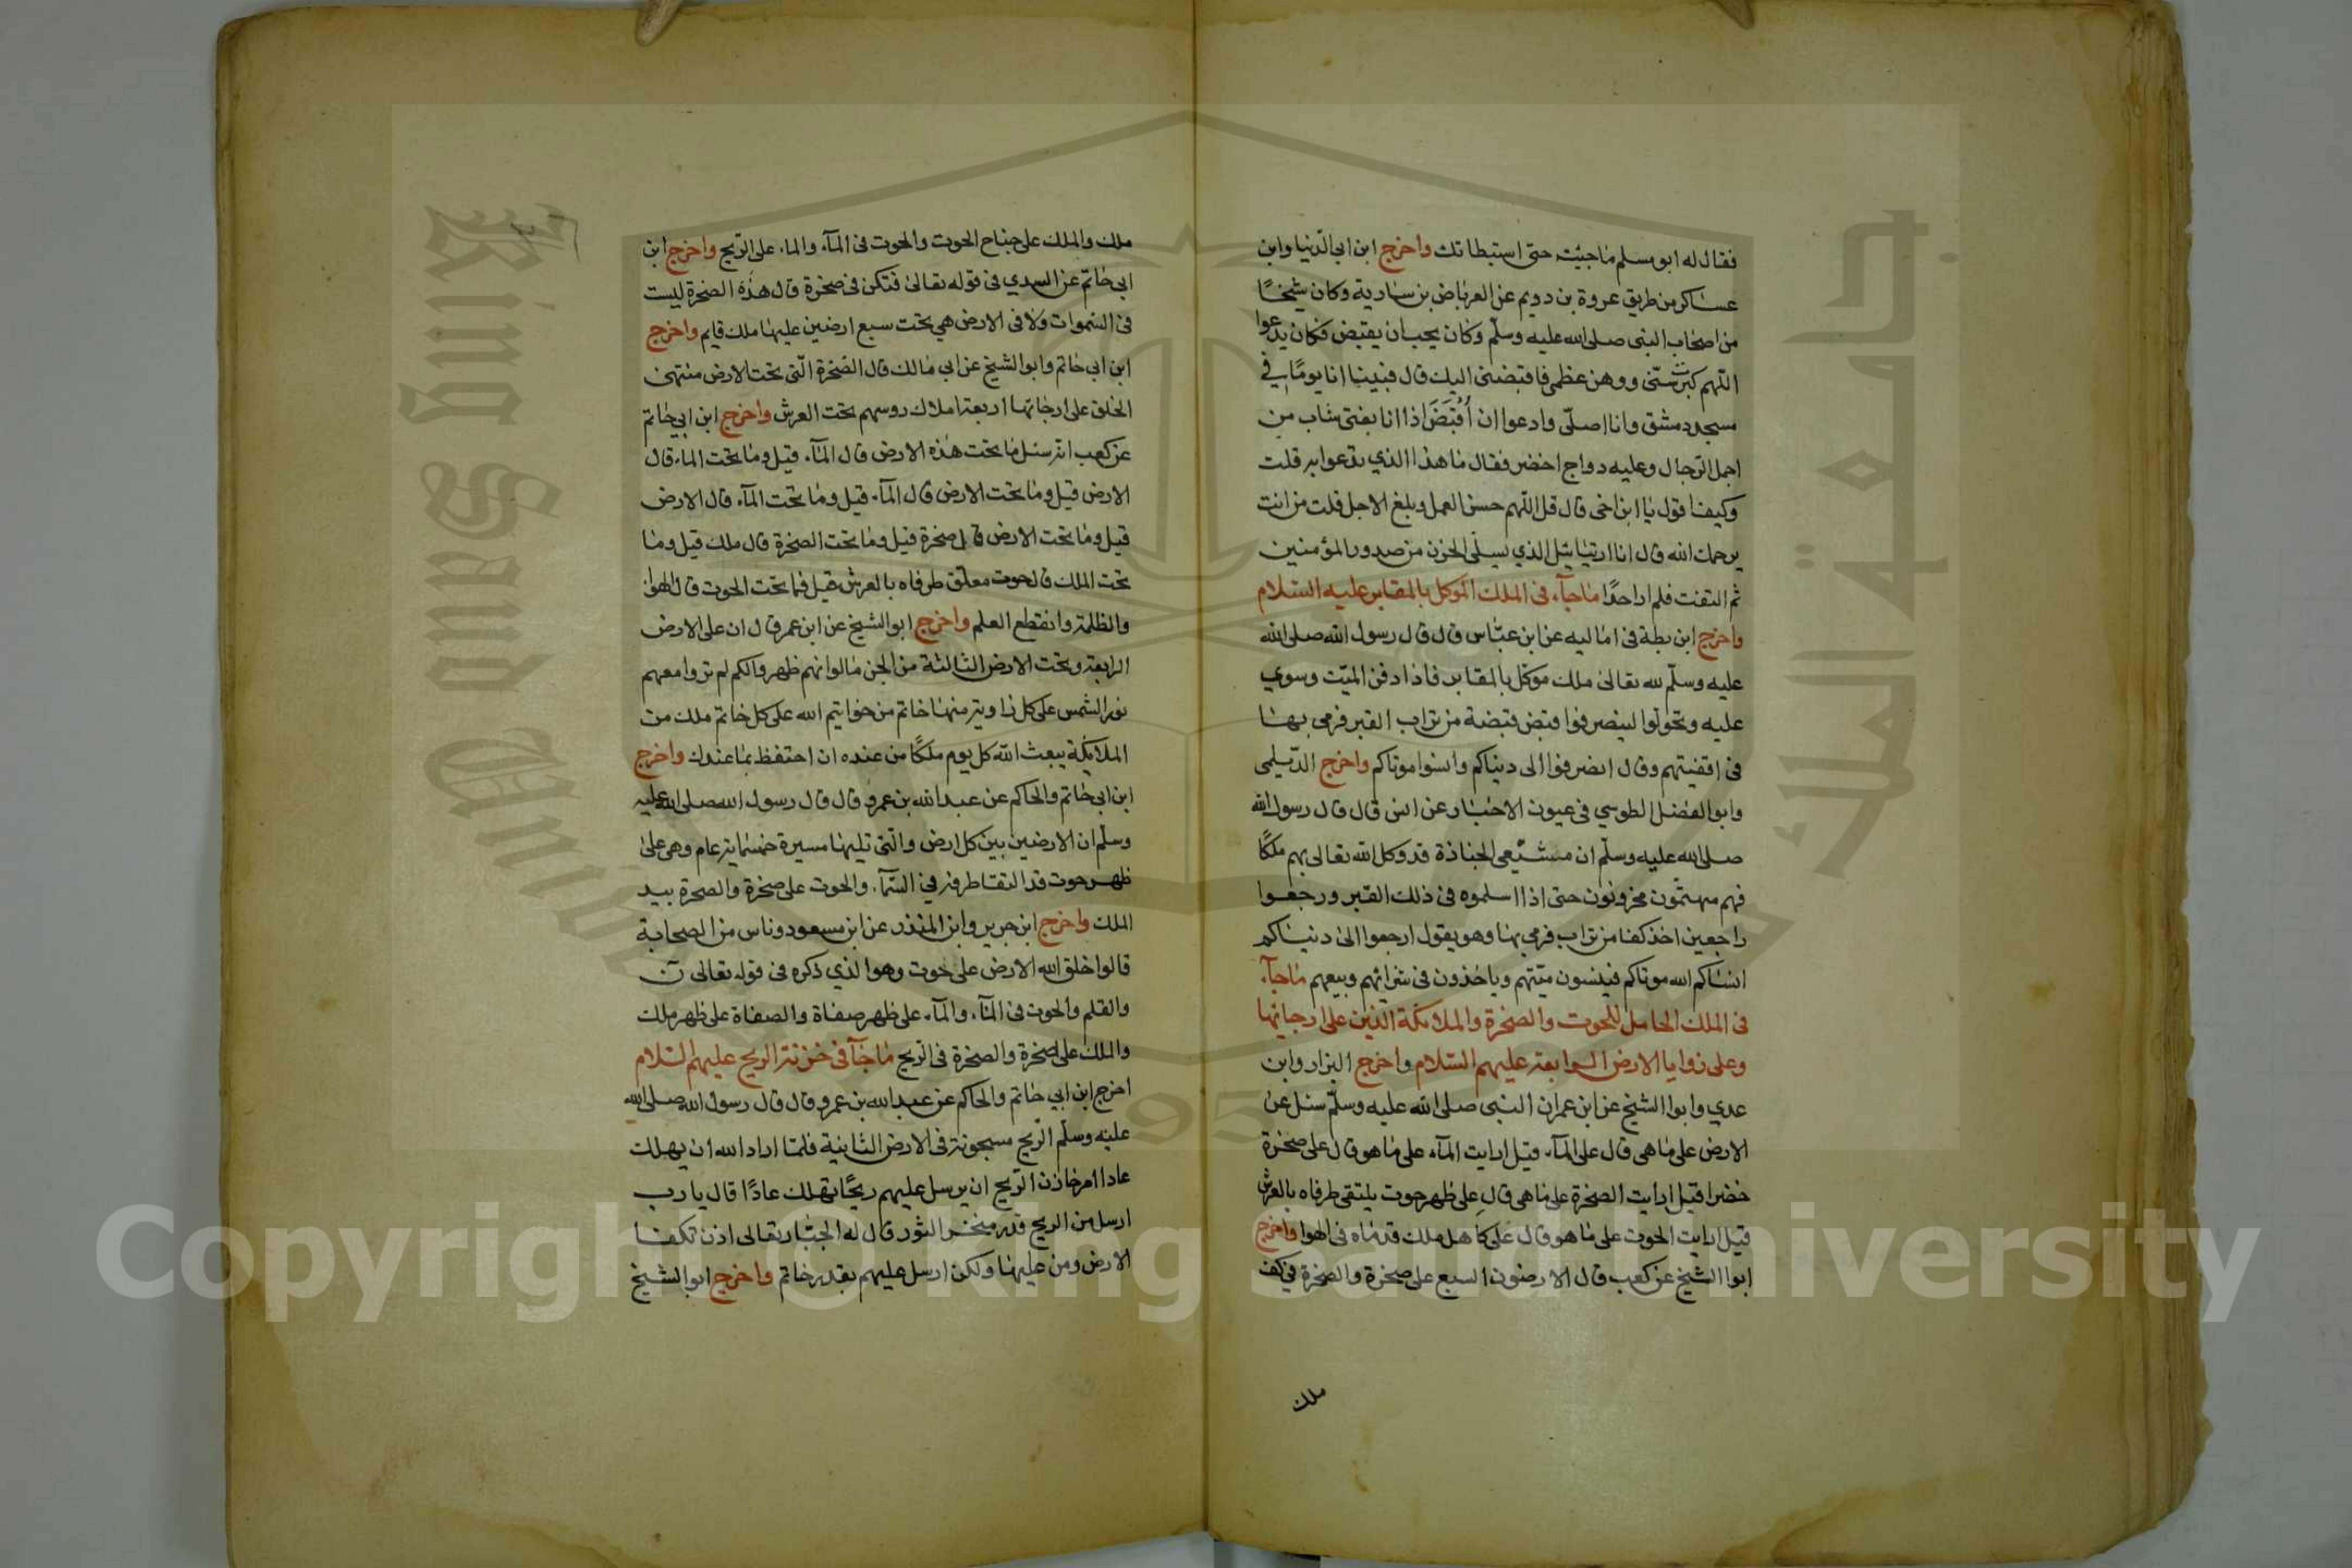 فقال له ابو مسلم ماجيئت حتى استبطاتك واخرج ابن ابي الدنيا وابن
عساكر من طريق عروة بن دويم عن العرباض بن سارية وكان شيخًا
من اصحاب النبى صلى الله عليه وسلم وكان يحب ان يقبض فكان يدعوا
اللهم كبرت سنى ووهن عظمى فاقبضنى اليك قال فبينا انا يومًا في
مسجد دمشق وانا اصلى وادعوا ان اُقبَضَ اذا انا بفتى شاب من
اجمل الرجال وعليه دواج اخضر فقال ما هذا الذي تدعوا به قلت
وكيف اقول يا ابن اخى قال قل اللهم حسن العمل وبلغ الاجل قلت من انت
يرحمك الله قال انا ارتيائيل الذي يسلى الحزن من صدور المؤمنين
ثم التفت فلم ار احدًا ماجآء فى الملك الموكل بالمقابر عليه السلام
واخرج ابن بطة فى اماليه عن ابن عباس قال قال رسول الله صلى الله
عليه وسلم لله تعالى ملك موكل بالمقابر فاذا دفن الميت وسوي
عليه وتحولوا لينصرفوا قبض قبضة من تراب القبر فرمى بها
فى اقفيتهم وقال انصرفوا الى دنياكم وانسوا موتاكم واخرج الديلمى
وابو الفضل الطوسي فى عيون الاخبار عن انس قال قال رسول الله
صلى الله عليه وسلم ان مشيعى الجنازة قد وكل الله تعالى بهم ملكًا
فهم مهتمون محزونون حتى اذا اسلموه فى ذلك القبر ورجعوا
راجعين اخذ كفا من تراب فرمي بها وهو يقول ارجعوا الى دنياكم
انساكم الله موتاكم فينسون ميتهم وياخذون فى شرائهم وبيعهم ماجآء
فى الملك الحامل للحوت والصخرة والملائكة الذين على ارجائها
وعلى زوايا الارض السابعة عليهم السلام واخرج البزار وابن
عدي وابوا الشيخ عن ابن عمر ان النبى صلى الله عليه وسلم سئل عن
الارض على ما هى قال على المآء قيل ارايت المآء على ما هو قال على صخرة
خضرا قيل ارايت الصخرة على ما هى قال على ظهر حوت يلتقى طرفاه بالعرش
قيل ارايت الحوت على ما هو قال على كاهل ملك قدماه فى الهوا واخرج
ابوا الشيخ عن كعب قال الارضون السبع على صخرة والصخرة في كف
ملك
ملك والملك على جناح الحوت والحوت فى المآء والماء على الريح واخرج ابن
ابي حاتم عن السدي فى قوله تعالى فتكن فى صخرة قال هذه الصخرة ليست
فى السموات ولا فى الارض هي تحت سبع ارضين عليها ملك قايم واخرج
ابن ابي حاتم وابو الشيخ عن ابي مالك قال الصخرة التى تحت الارض منتهى
الخلق على ارجائها اربعة املاك روسهم تحت العرش واخرج ابن ابي حاتم
عن كعب انه سئل ما تحت هذه الارض قال المآء قيل وما تحت الماء قال
الارض قيل وما تحت الارض قال المآء قيل وما تحت المآء قال الارض
قيل وما تحت الارض قال صخرة قيل وما تحت الصخرة قال ملك قيل وما
تحت الملك قال حوت معلق طرفاه بالعرش قيل فما تحت الحوت قال الهوا
والظلمة وانقطع العلم واخرج ابو الشيخ عن ابن عمر قال ان على الارض
الرابعة وتحت الارض الثالثة من الجن مالوا نهم ظهروا لكم لم تروا معهم
نور الشمس على كل زاوية منها خاتم من خواتيم الله على كل خاتم ملك من
الملايكة يبعث الله كل يوم ملكًا من عنده ان احتفظ بما عندك واخرج
ابن ابي حاتم والحاكم عن عبد الله بن عمرو قال قال رسول الله صلى الله عليه
وسلم ان الارضين بين كل ارض والتى تليها مسيرة خمسماية عام وهى على
ظهر حوت قد التقا طرفه في السمآء والحوت على صخرة والصخرة بيد
الملك واخرج ابن جرير وابن المنذر عن ابن مسعود وناس من الصحابة
قالوا خلق الله الارض على حوت وهو الذي ذكره فى قوله تعالى ن
والقلم والحوت فى المآء والمآء على ظهر صفاة والصفاة على ظهر ملك
والملك على صخرة والصخرة فى الريح ماجآء فى خزنة الريح عليهم السلام
اخرج ابن ابي حاتم والحاكم عن عبد الله بن عمرو قال قال رسول الله صلى الله
عليه وسلم الريح مسجونة فى الارض الثانية فلما اراد الله ان يهلك
عادا امر خازن الريح ان يرسل عليهم ريحًا تهلك عادًا قال يا رب
ارسل من الريح قدر منخر الثور قال له الجبار تعالى اذن تكفا
الارض ومن عليها ولكن ارسل عليهم بقدر خاتم واخرج ابوا الشيخ
Copyright © King Saud University